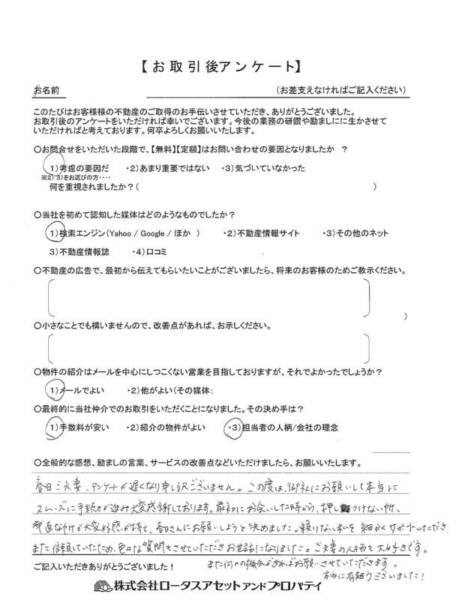 【お取引後アンケート】
お名前　　　　　　　　　　　　　　　　(お差支えなければご記入ください)
このたびはお客様様の不動産のご取得のお手伝いさせていただき、ありがとうございました。
お取引後のアンケートをいただければ幸いでございます。今後の業務の研鑽や励ましにに生かさせて
いただければと考えております。何卒よろしくお願いいたします。
〇お問合せをいただいた段階で、【無料】【定額】はお問い合わせの要因となりましたか ？
1)考慮の要因だ ・2)あまり重要ではない ・3)気づいていなかった
※2)3)をお選びの方・・・・
何を重視されましたか？(　　　　　　　　　　)
〇当社を初めて認知した媒体はどのようなものでしたか？
1)検索エンジン(Yahoo / Google / ほか ) ・2)不動産情報サイト ・3)その他のネット
3)不動産情報誌 ・4)口コミ
〇不動産の広告で、最初から伝えてもらいたいことがございましたら、将来のお客様のためご教示ください。
〇小さなことでも構いませんので、改善点があれば、お示しください。
〇物件の紹介はメールを中心にしつこくない営業を目指しておりますが、それでよかったでしょうか？
1)メールでよい ・2)他がよい(その媒体:
〇最終的に当社仲介でのお取引をいただくことになりました。その決め手は？
1)手数料が安い ・2)紹介の物件がよい ・3)担当者の人柄/会社の理念
〇全般的な感想、励ましの言葉、サービスの改善点などいただけましたら、お願いいたします。
春日ご夫妻、アンケートが遅くなり申し訳ございません。この度は、御社にお願いして本当に
スムーズに手続きが進み大変感謝しております。最初にお会いした時から、押しつけない所、
大変好感が持て、春日さんにお願いしようと決めました。
また信頼していたため、色々な質問をさせていただきお世話になりました。ご夫妻の人柄も大好きです。
また何かの機会があればお願いさせていただきます。
本当に有難うございました！
ご記入いただきありがとうございました！
株式会社ロータスアセットアンドプロパティ